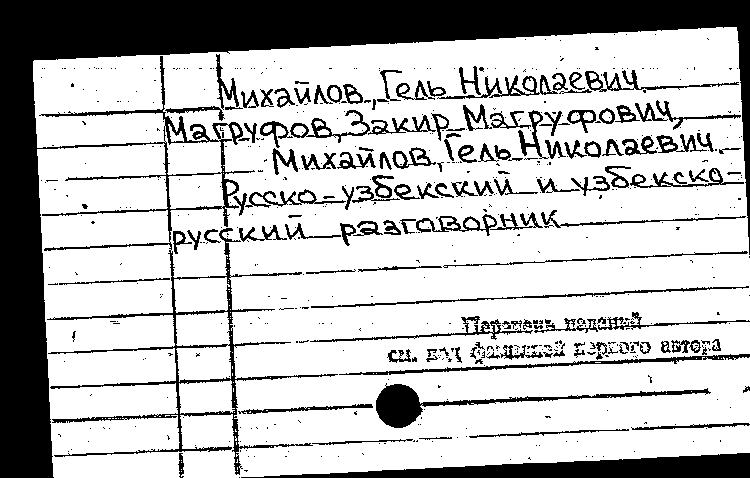 Михайлов, Гель Николаевич
Магруфов, Закир Магруфович,
Михайлов, Гель Николаевич.
Русско-узбекский и узбекско-
русский разговорник
Перечень изданий
см. под фамилией первого автора